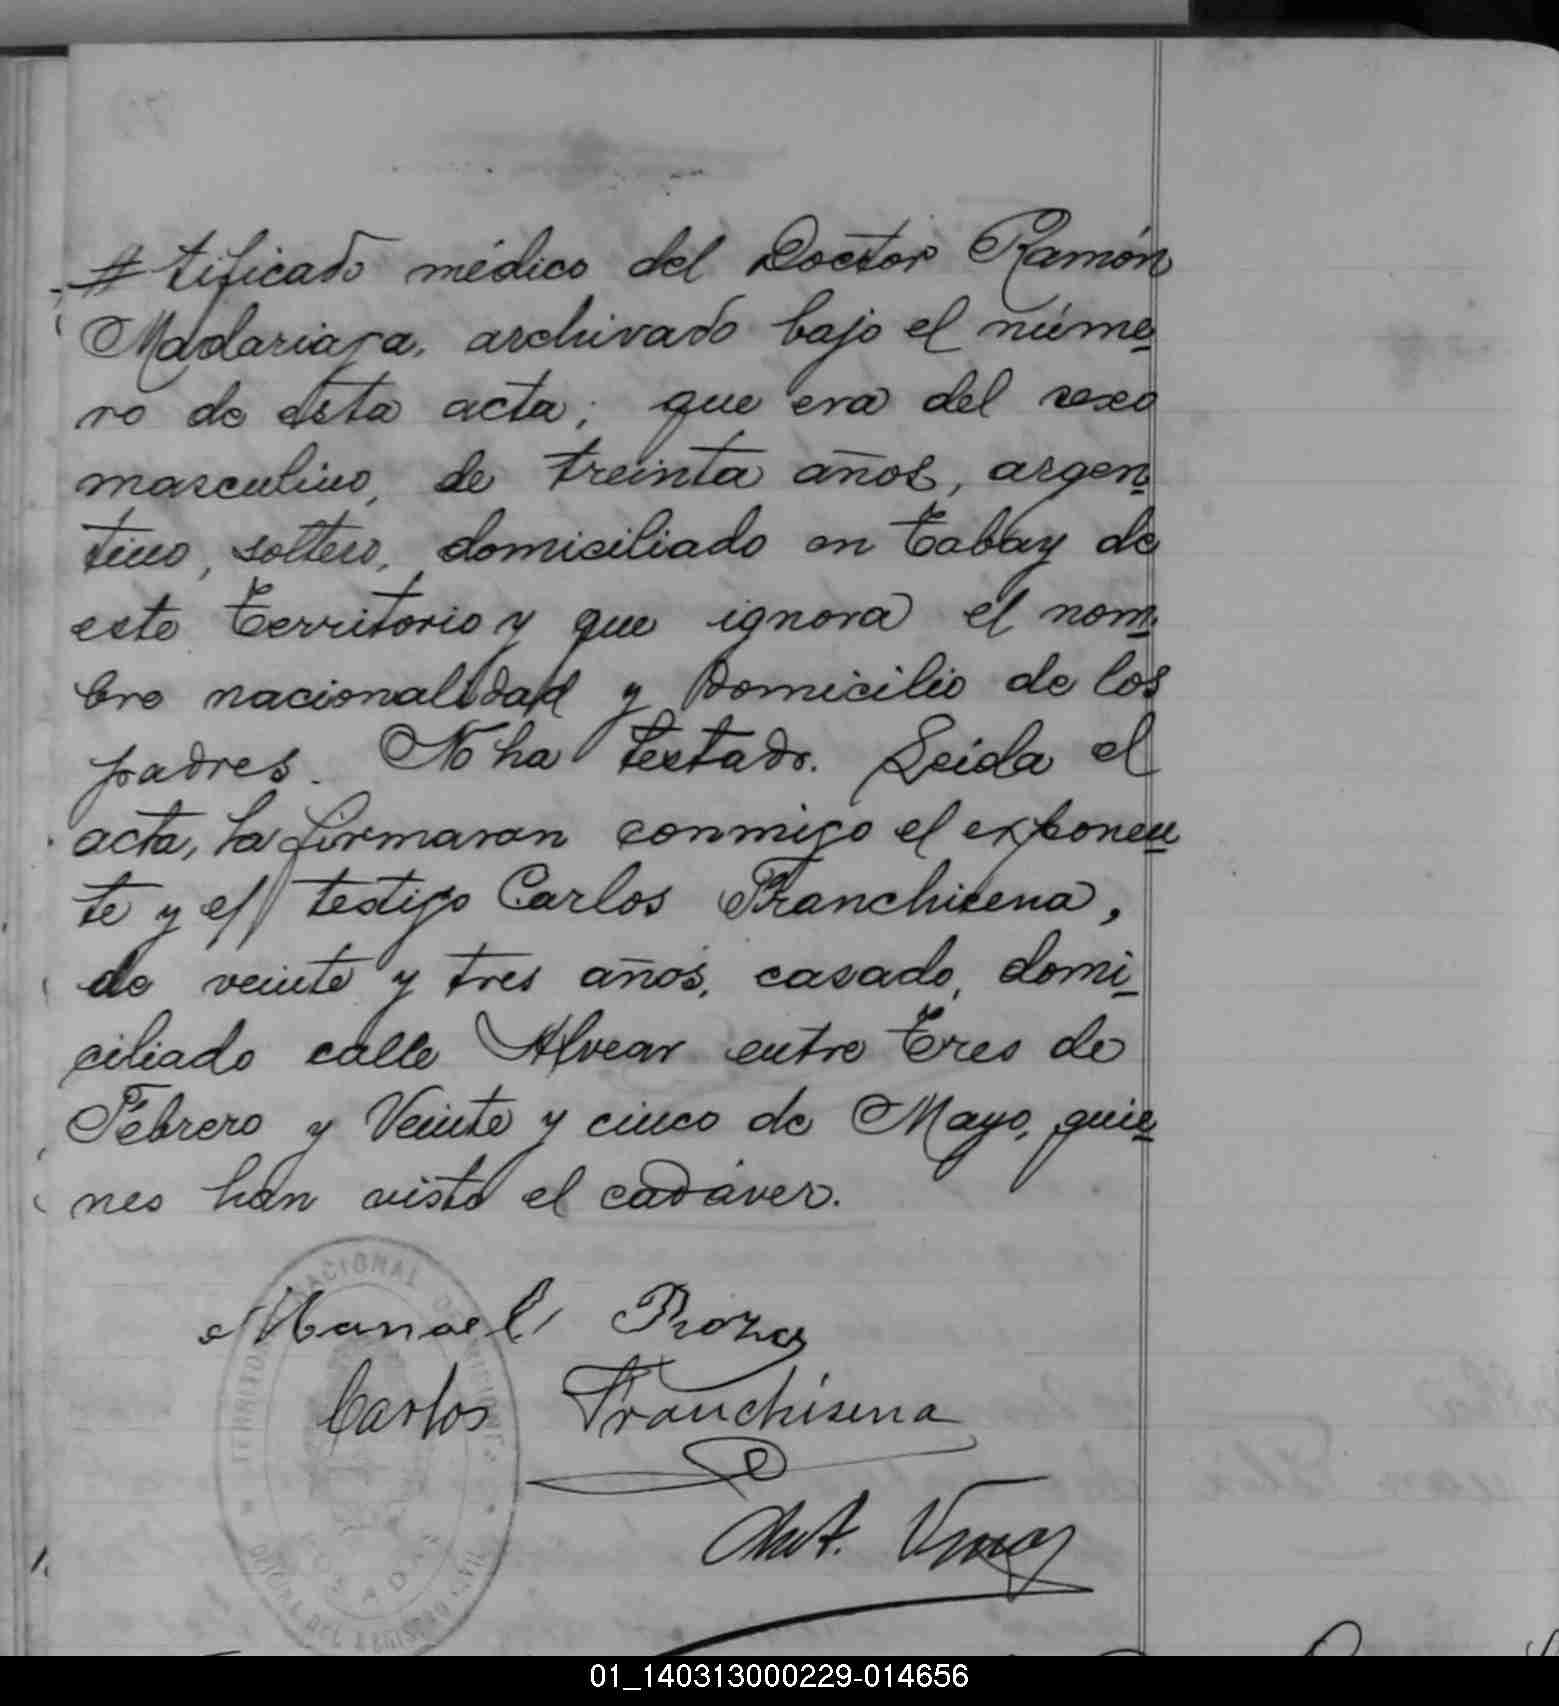 # tificado médico del Doctor Ramón
Madariaga, archivado bajo el núme
ro de esta acta; que era del sexo
masculino, de treinta años, argen
tino, soltero, domiciliado en Tabay de
este Territorio y que ignora el nom
bre nacionalidad y domicilio de los
padres. No ha testado. Leida el
acta, la firmaran conmigo el exponen
te y el testigo Carlos Franchisena,
de veinte y tres años, casado, domi
ciliado calle Alvear entre Tres de
Febrero y Veinte y cinco de Mayo, quie
nes han visto el cadáver.
TERRITORIO NACIONAL DE MISIONES
POSADAS
OFICINA DEL REGISTRO CIVIL
Manuel
Carlos Franchisena
Ant.
01_140313000229-014656